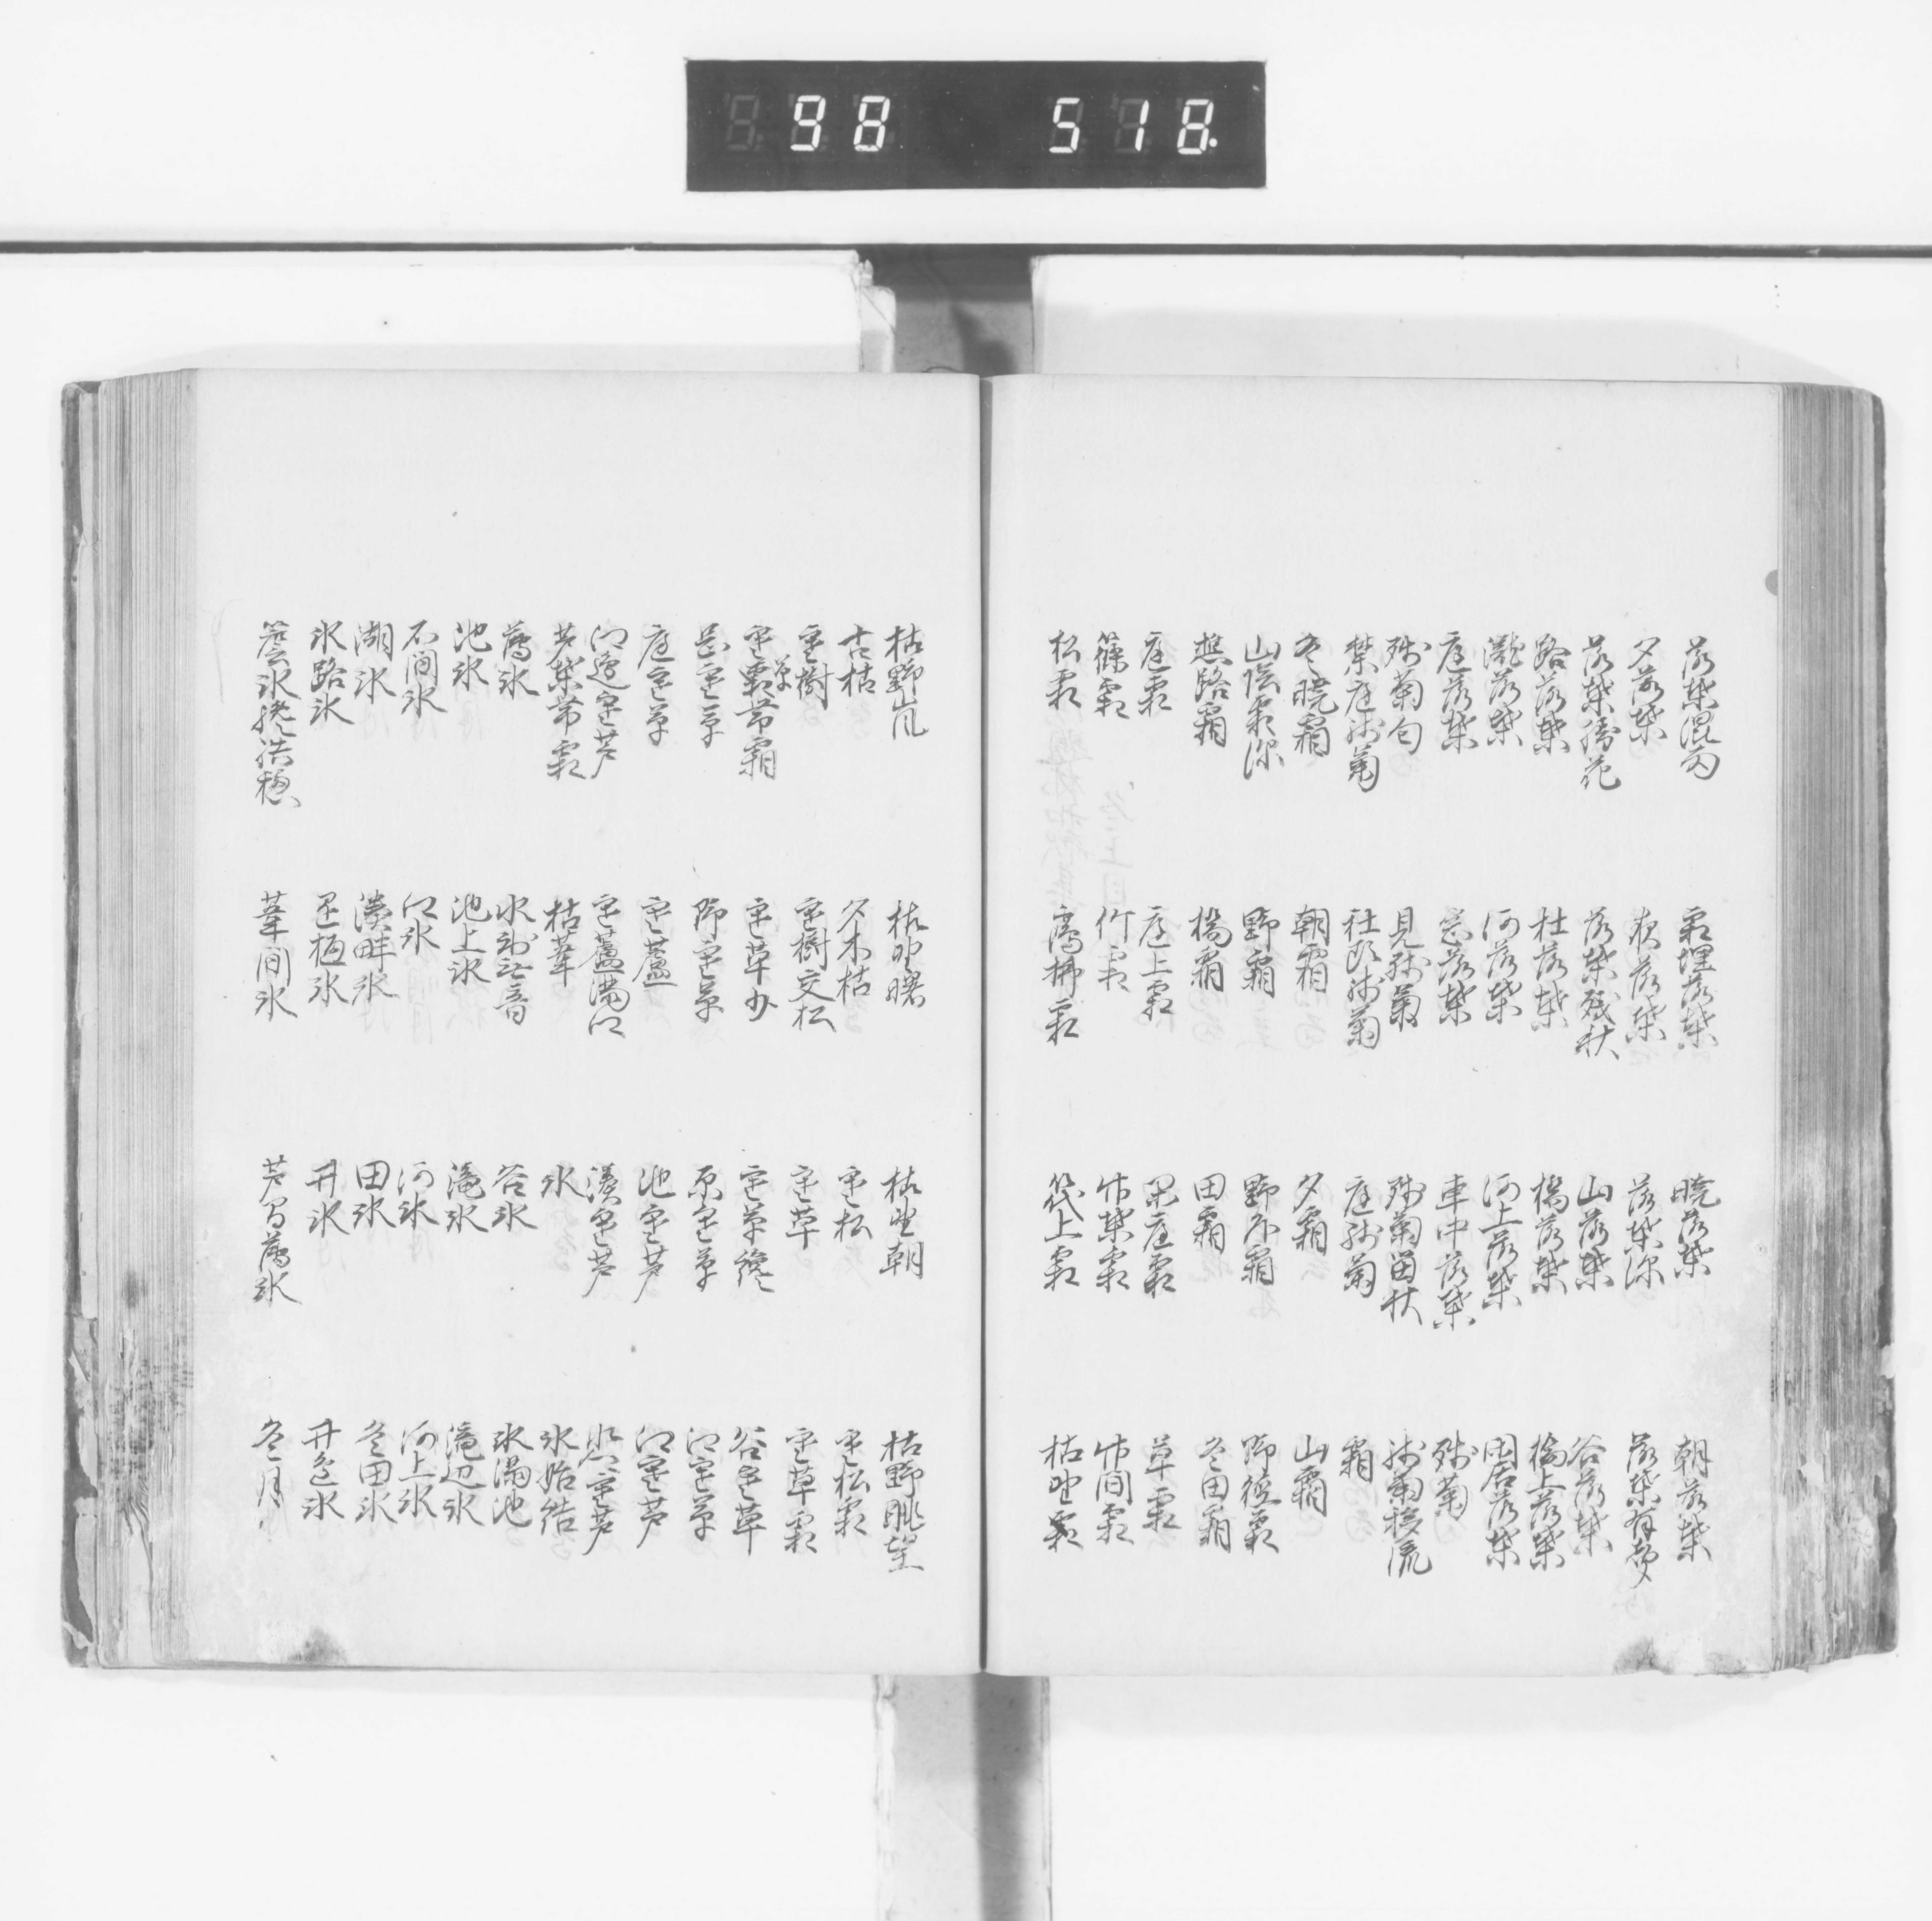 98 518
落葉混雨 霜埋落葉 暁落葉 朝落葉
夕落葉 夜落葉 落葉深 落葉有声
落葉勝花 落葉残秋 山落葉 谷落葉
路落葉 杜落葉 橋落葉 橋上落葉
瀧落葉 河落葉 河上落葉 閑居落葉
庭落葉 窓落葉 車中落葉 残菊
残菊匂 見残菊 残菊留秋 残菊移流
禁庭残菊 社頭残菊 庭残菊 霜
冬暁霜 朝霜 夕霜 山霜
山陰霜深 野霜 野外霜 野径霜
樵路霜 橋霜 田霜 冬田霜
庭霜 庭上霜 閑庭霜 草霜
篠霜 竹霜 竹葉霜 竹間霜
松霜 鷹払霜 筏上霜 枯野霜
枯野嵐 枯野曙 枯野朝 枯野眺望
古枯 冬木枯 寒松 寒松霜
寒樹 寒樹交松 寒草 寒草霜
寒草帯霜 寒草少 寒草纔 谷寒草
岡寒草 野寒草 原寒草 江寒草
庭寒草 寒蘆 池寒芦 江寒芦
江辺寒芦 寒蘆満江 湊寒芦 寒芦
芦葉帯霜 枯葦 氷 氷始結
薄氷 氷留水音 谷氷 氷満池
池氷 池上氷 滝氷 滝辺氷
石間氷 江氷 河氷 河上氷
湖氷 湊畔氷 田氷 冬田氷
氷路氷 閉樋氷 井氷 井辺氷
葦間氷 芦間薄氷 冬月